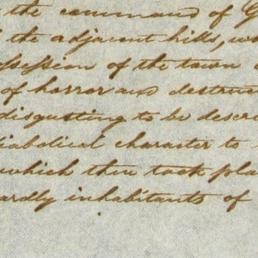 the command of G
the adjacent hills, w
session of the town
of horror and destruc
disgusting to be descri
iabolical character to
which then took pla
ardly inhabitants of